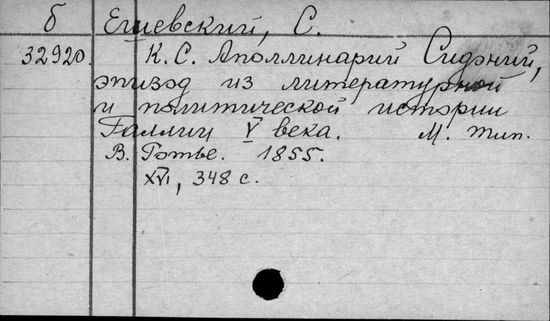 б Ешевский, С.
32920. К. С. Аполлинарий Сидоний,
эпизод из литературной
и политической истории
Галлии V века. М. тип.
В. Готье. 1855.
XVI, 348 с.